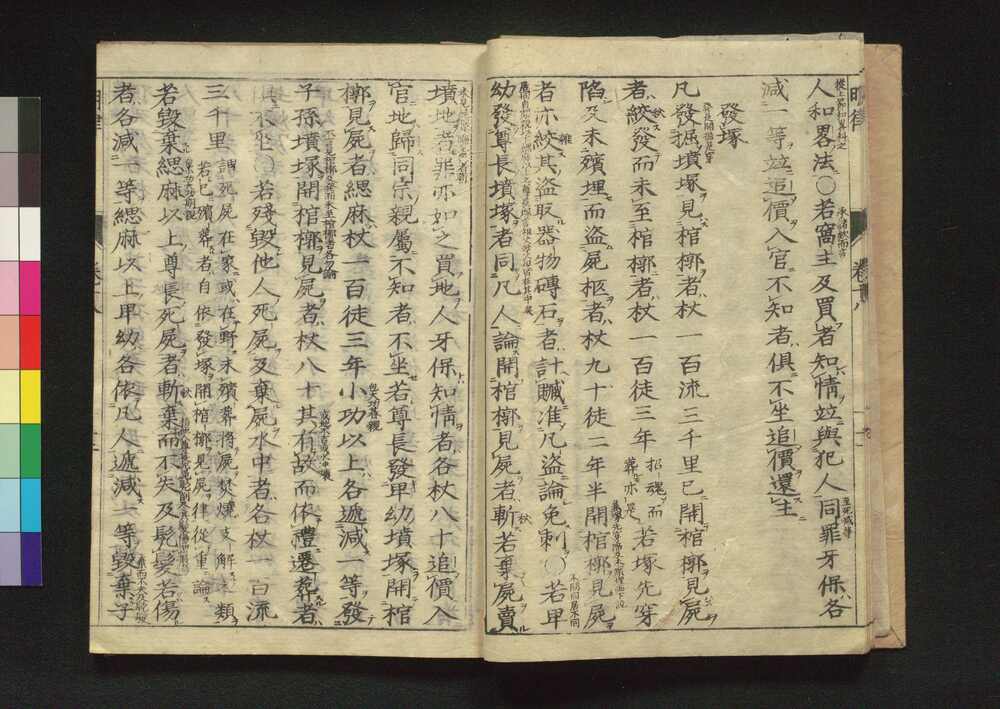 人和畧法○若窩主及買者知情竝與犯人同罪牙保各
減一等竝追價入官不知者俱不坐追價還主
發塚
凡發掘墳塚見棺槨者杖一百流三千里已開棺槨見屍
者絞發而未至棺槨者杖一百徒三年招魂而葬亦是若塚先穿
陷及未殯埋而盜屍柩者杖九十徒二年半開棺槨見屍
者亦絞其盜取器物磚石者計贓准凡盜論免刺○若卑
幼發尊長墳塚者同凡人論開棺槨見屍者斬若棄屍賣
墳地者罪亦如之買地人牙保知情者各杖八十追價入
官地歸同宗親屬不知者不坐若尊長發卑幼墳塚開棺
槨見屍者緦麻杖一百徒三年小功以上各遞減一等發
子孫墳塚開棺槨見屍者杖八十其有故而依禮遷葬者
不坐○若殘毀他人死屍及棄屍水中者各杖一百流
三千里謂死屍在家或在野未殯葬將屍焚燒支解之類若已殯葬者自依發塚開棺槨見屍律從重論
若毀棄緦麻以上尊長死屍者斬棄而不失及髡髮若傷
者各減一等緦麻以上卑幼各依凡人遞減一等毀棄子